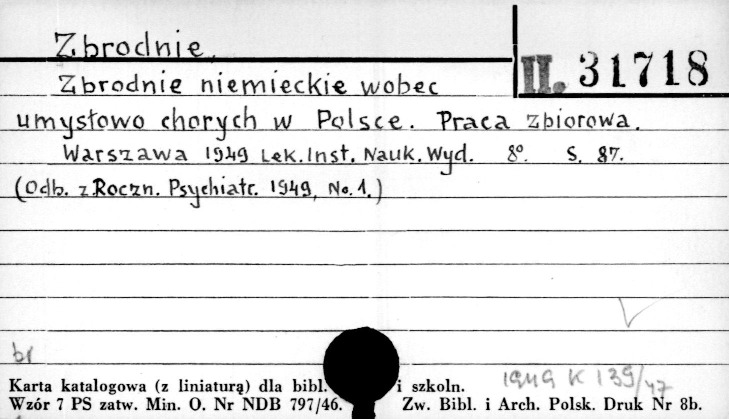 Zbrodnie.
II. 31718
Zbrodnie niemieckie wobec
umysłowo chorych w Polsce. Praca zbiorowa.
Warszawa 1949 Lek. Inst. Nauk. Wyd. 8º. S. 87.
(Odb. z Roczn. Psychiatr. 1949, No. 1.)
br
1949 K 139/47
Karta katalogowa (z liniaturą) dla bibl. i szkoln.
Wzór 7 PS zatw. Min. O. Nr NDB 797/46. Zw. Bibl. i Arch. Polsk. Druk Nr 8b.